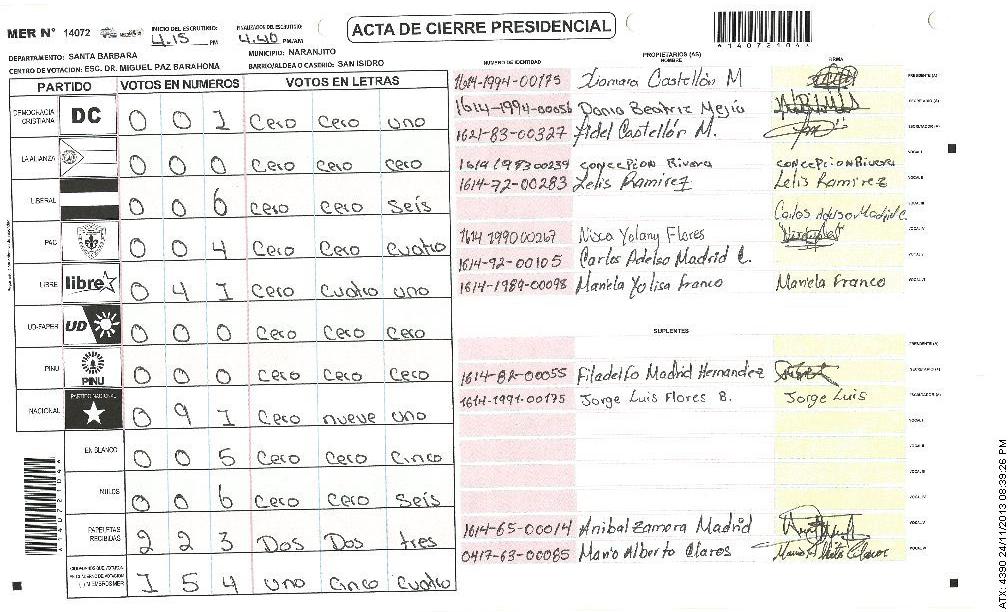 MER N° 14072
INICIO DEL ESCRUTINIO: 4.15 PM
FINALIZADOR DEL ESCRUTINIO: 4.40 PM/AM
ACTA DE CIERRE PRESIDENCIAL
A14072104A
DEPARTAMENTO: SANTA BARBARA
MUNICIPIO: NARANJITO
CENTRO DE VOTACION: ESC. DR. MIGUEL PAZ BARAHONA
BARRIO/ALDEA O CASERIO: SAN ISIDRO
PARTIDO VOTOS EN NUMEROS VOTOS EN LETRAS
DEMOCRACIA CRISTIANA DC 0 0 1 Cero Cero uno
LA ALIANZA 0 0 0 Cero Cero Cero
LIBERAL 0 0 6 Cero Cero Seis
PAC 0 0 4 Cero Cero Cuatro
LIBRE libre 0 4 1 Cero Cuatro uno
UD-FAPER UD 0 0 0 Cero Cero Cero
PINU PINU 0 0 0 Cero Cero Cero
NACIONAL PARTIDO NACIONAL 0 9 1 Cero nueve uno
EN BLANCO 0 0 5 Cero Cero Cinco
NULOS 0 0 6 Cero Cero Seis
PAPELETAS RECIBIDAS 2 2 3 Dos Dos tres
1 5 4 uno cinco cuatro
A14072104A
NUMERO DE IDENTIDAD PROPIETARIOS (AS) NOMBRE FIRMA
1614-1994-00175 Xiomara Castellón M PRESIDENTE (A)
1614-1994-00056 Dania Beatriz Mejía SECRETARIO (A)
1621-83-00327 Fidel Castellón M. ESCRUTADOR (A)
1614198300239 concepcion Rivera concepcion Rivera VOCAL I
1614-72-00283 Lelis Ramirez Lelis Ramirez VOCAL II
Carlos Adelso Madrid C. VOCAL III
1614199000267 Nisca Yolany Flores VOCAL IV
1614-92-00105 Carlos Adelso Madrid C. VOCAL V
1614-1989-00098 Mariela Yolisa Franco Mariela Franco VOCAL VI
SUPLENTES
PRESIDENTE (A)
1614-82-00055 Filadelfo Madrid Hernandez SECRETARIO (A)
1614-1991-00175 Jorge Luis Flores B. Jorge Luis ESCRUTADOR (A)
VOCAL I
VOCAL II
VOCAL III
VOCAL IV
1614-65-00014 Anibal Zamora Madrid VOCAL V
0417-63-00085 Mario Alberto Claros Mario Alberto Claros VOCAL VI
ATX: 4390 24/11/2013 08:39:26 PM